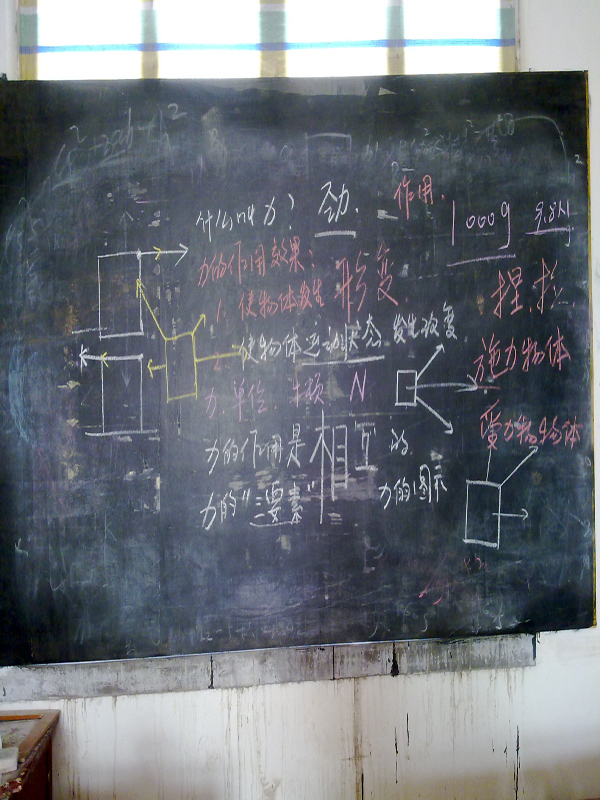 什么叫力？ 劲.
作用.
1000g 9.8N
力的作用效果：
1. 使物体发生 形变
捏.拉
使物体运动状态 发生改变
施力物体
力.单位. 牛顿 N
受力物物体
力的作用是相互的
力的“三要素”
力的图示